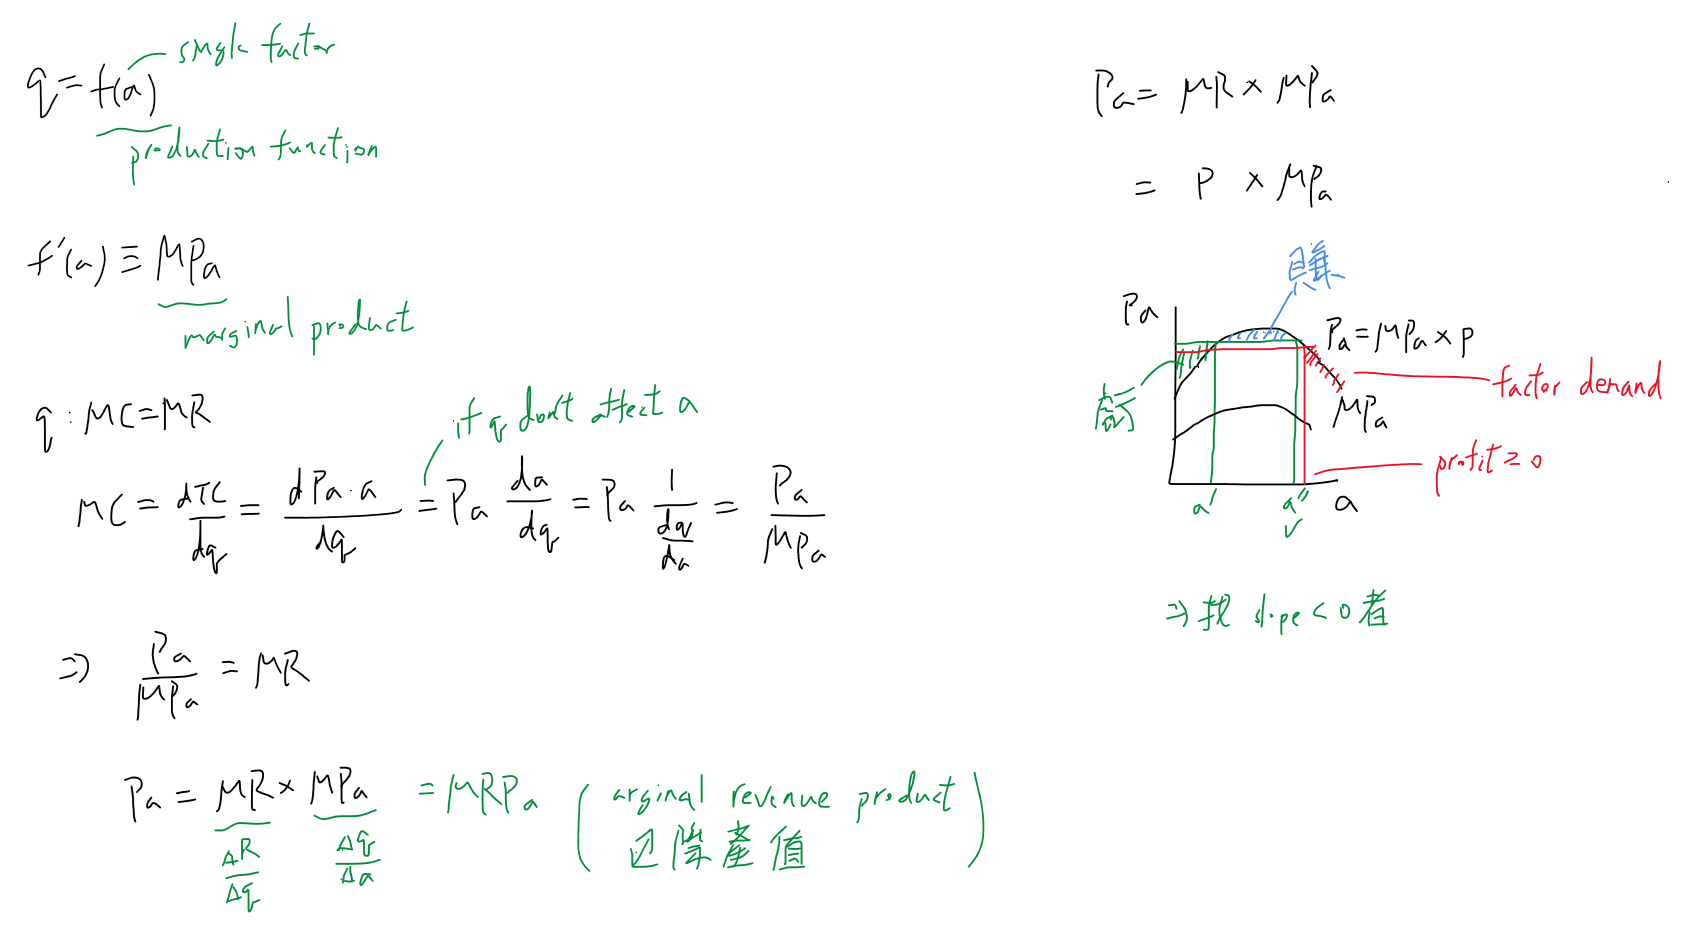 single factor
q = f(a)
production function
f'(a) ≡ MPa
marginal product
q : MC = MR
if q don't affect a
MC = dTC/dq = dPa·a/dq = Pa da/dq = Pa 1/(dq/da) = Pa/MPa
⇒ Pa/MPa = MR
Pa = MR × MPa = MRPa ( arginal revenue product
邊際產值 )
ΔR/Δq Δq/Δa
Pa = MR × MPa
= P × MPa
賺
Pa
Pa = MPa × P
factor demand
虧
MPa
profit ≥ 0
a' a'' a
✓
⇒ 找 slope < 0 者